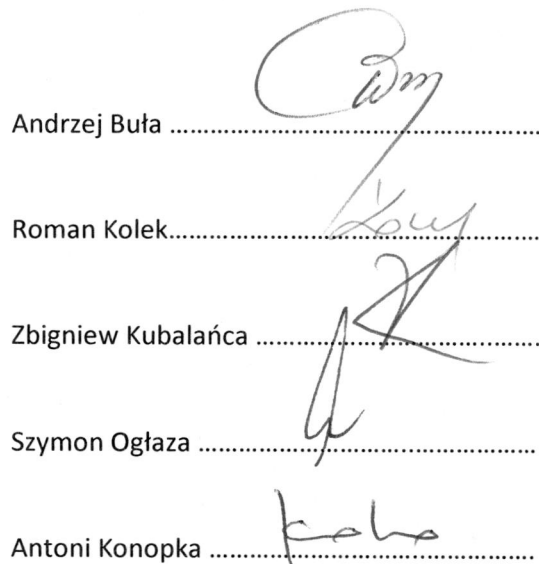 Andrzej Buła ..........................................................
Roman Kolek..........................................................
Zbigniew Kubalańca ............................................
Szymon Ogłaza .....................................................
Antoni Konopka ...................................................